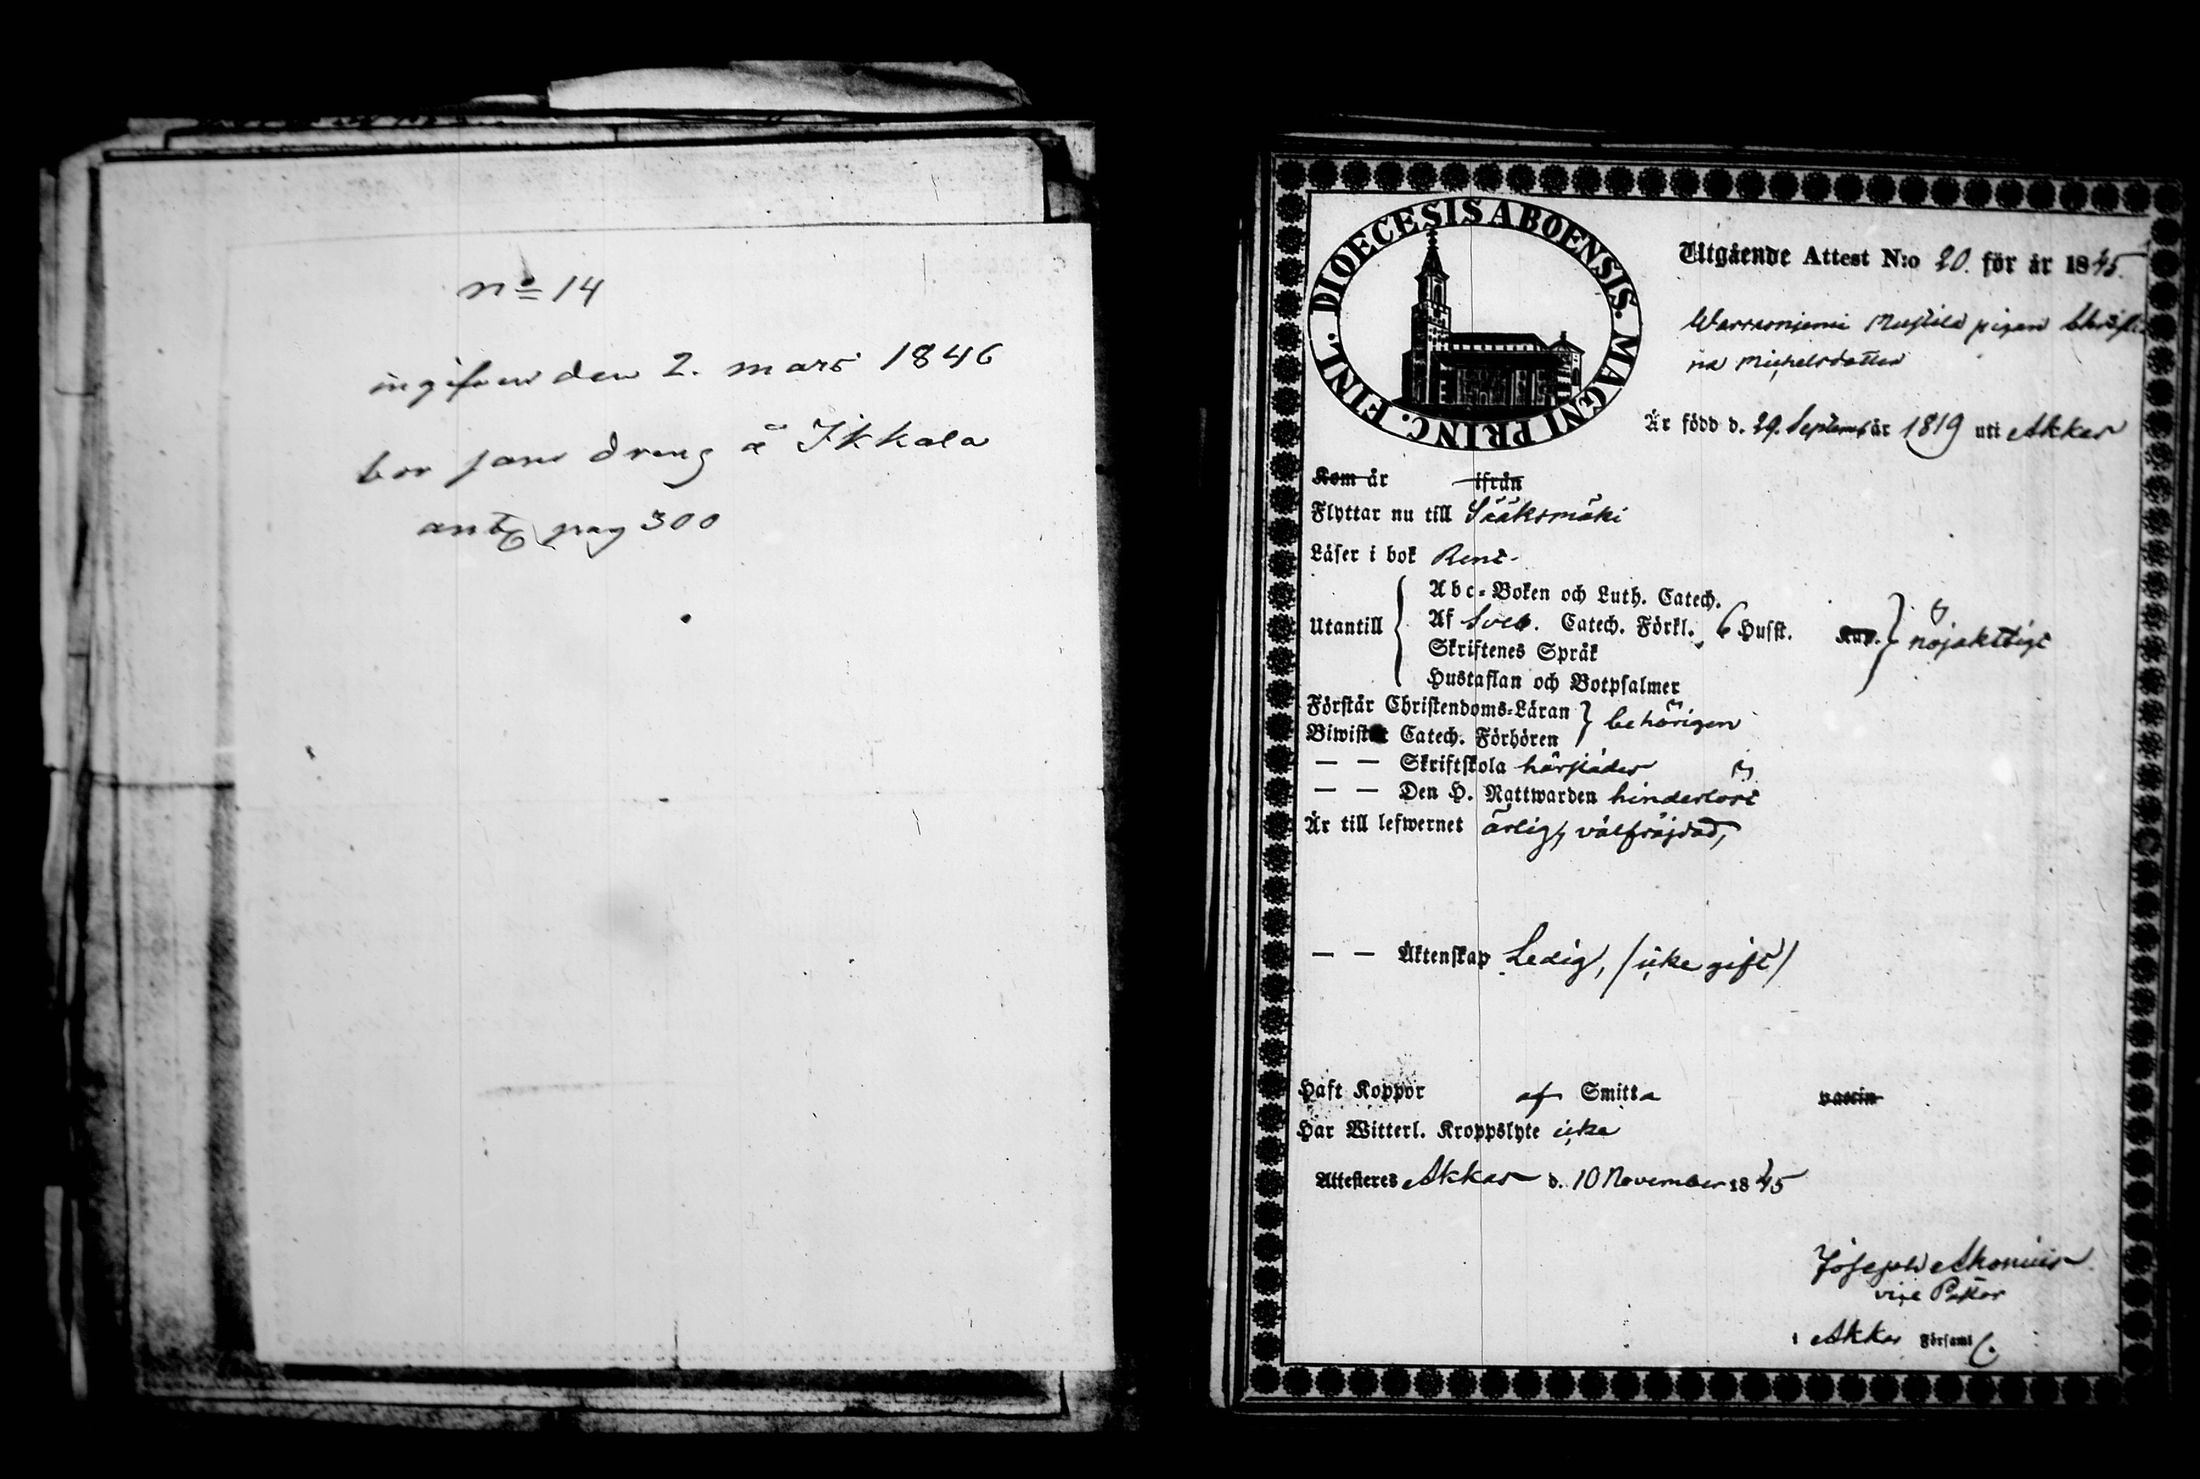 no 14
ingifven den 2. mars 1846
bor som dreng å Ikkala
ant pag 300
DIOECESIS ABOENSIS. MAGNI PRINC. FINL.
Utgående Attest N:o 20. för år 1845.
pigan Christi
na Michelsdotter
Är född d. 29. September 1819 uti Akkas
Kom år ifrån
Flyttar nu till Sääksmäki
Läser i bok Rent
Utantill
Abc-Boken och Luth. Catech.
Af Sveb. Catech. Förkl. 6 Husst. Kap. nöjaktligt
Skriftenes Språk
Hustaflan och Botpsalmer
Förstår Christendoms-Läran
Biwistat Catech. Förhören behörigen
— — Skriftskola härstädes
— — Den H. Nattwarden hinderlöst
Är till lefwernet ärlig, välfräjdad,
— — Äktenskap Ledig, /icke gift/
Haft Koppor af Smitta vaccin
Har Witterl. Kroppslyte icke
Attesteras Akkas d. 10 November 1845
Joseph
vice Pastor
i Akkas Församl.